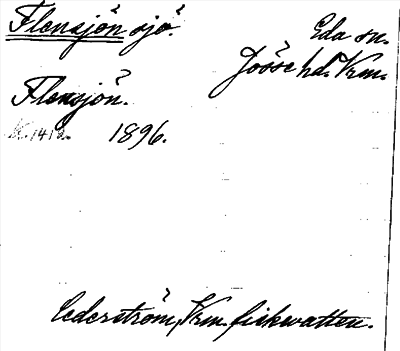 Flensjön sjö. Eda sn.
Jösse hd. Vrm.
Flensjön.
K. 1412. 1896.
Cederström, Vrm. fiskvatten.